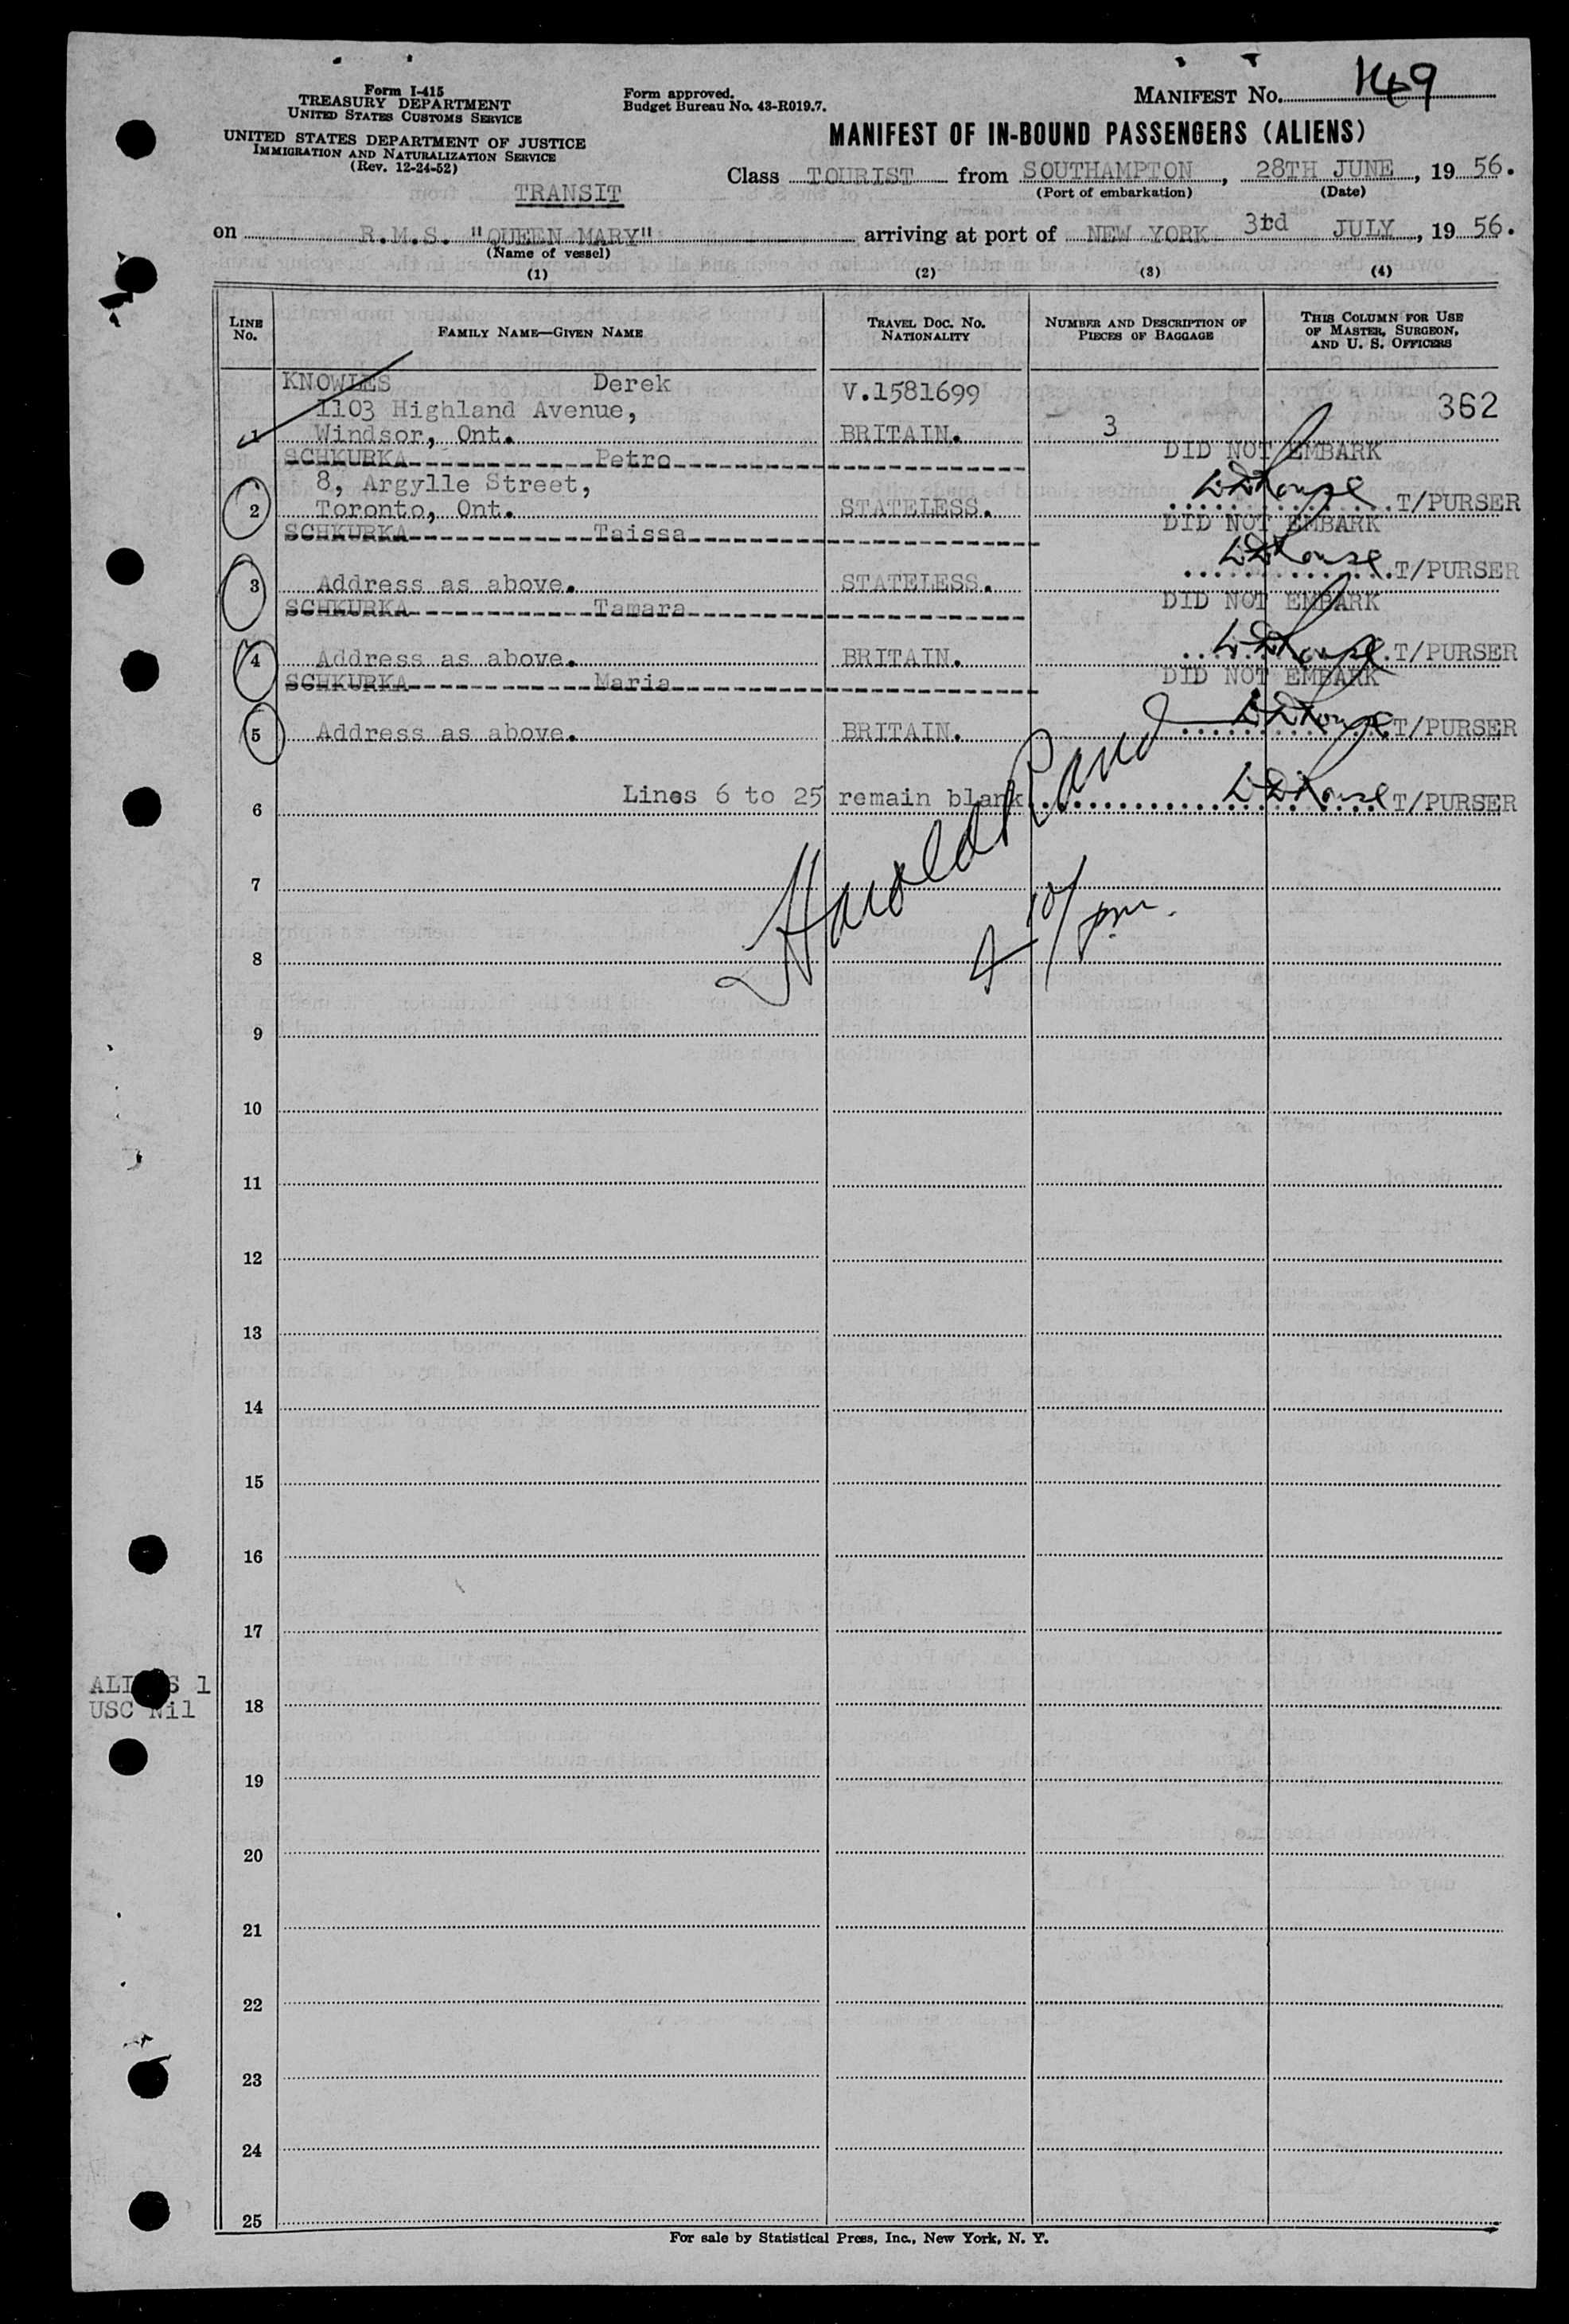 Form I-415
TREASURY DEPARTMENT
UNITED STATES CUSTOMS SERVICE
UNITED STATES DEPARTMENT OF JUSTICE
IMMIGRATION AND NATURALIZATION SERVICE
(Rev. 12-24-52)
Form approved.
Budget Bureau No. 43-R019.7.
MANIFEST NO. 149
MANIFEST OF IN-BOUND PASSENGERS (ALIENS)
Class TOURIST from SOUTHAMPTON, 28TH JUNE, 19 56.
(Port of embarkation) (Date)
TRANSIT
on R.M.S. "QUEEN MARY" arriving at port of NEW YORK 3rd JULY, 19 56.
(Name of vessel)
(1) (2) (3) (4)
LINE NO. FAMILY NAME—GIVEN NAME TRAVEL DOC. NO. NATIONALITY NUMBER AND DESCRIPTION OF PIECES OF BAGGAGE THIS COLUMN FOR USE OF MASTER, SURGEON, AND U. S. OFFICERS
KNOWLES Derek V.1581699
1103 Highland Avenue, 362
1 Windsor, Ont. BRITAIN. 3
SCHKURKA Petro DID NOT EMBARK
8, Argylle Street,
2 Toronto, Ont. STATELESS. T/PURSER
SCHKURKA Taissa DID NOT EMBARK
3 Address as above. STATELESS. T/PURSER
SCHKURKA Tamara DID NOT EMBARK
4 Address as above. BRITAIN. T/PURSER
SCHKURKA Maria DID NOT EMBARK
5 Address as above. BRITAIN. T/PURSER
6 Lines 6 to 25 remain blank T/PURSER
Harold Rand
7
4 10/pm.
8
9
10
11
12
13
14
15
16
17
ALIENS 1
USC Nil
18
19
20
21
22
23
24
25
For sale by Statistical Press, Inc., New York, N. Y.